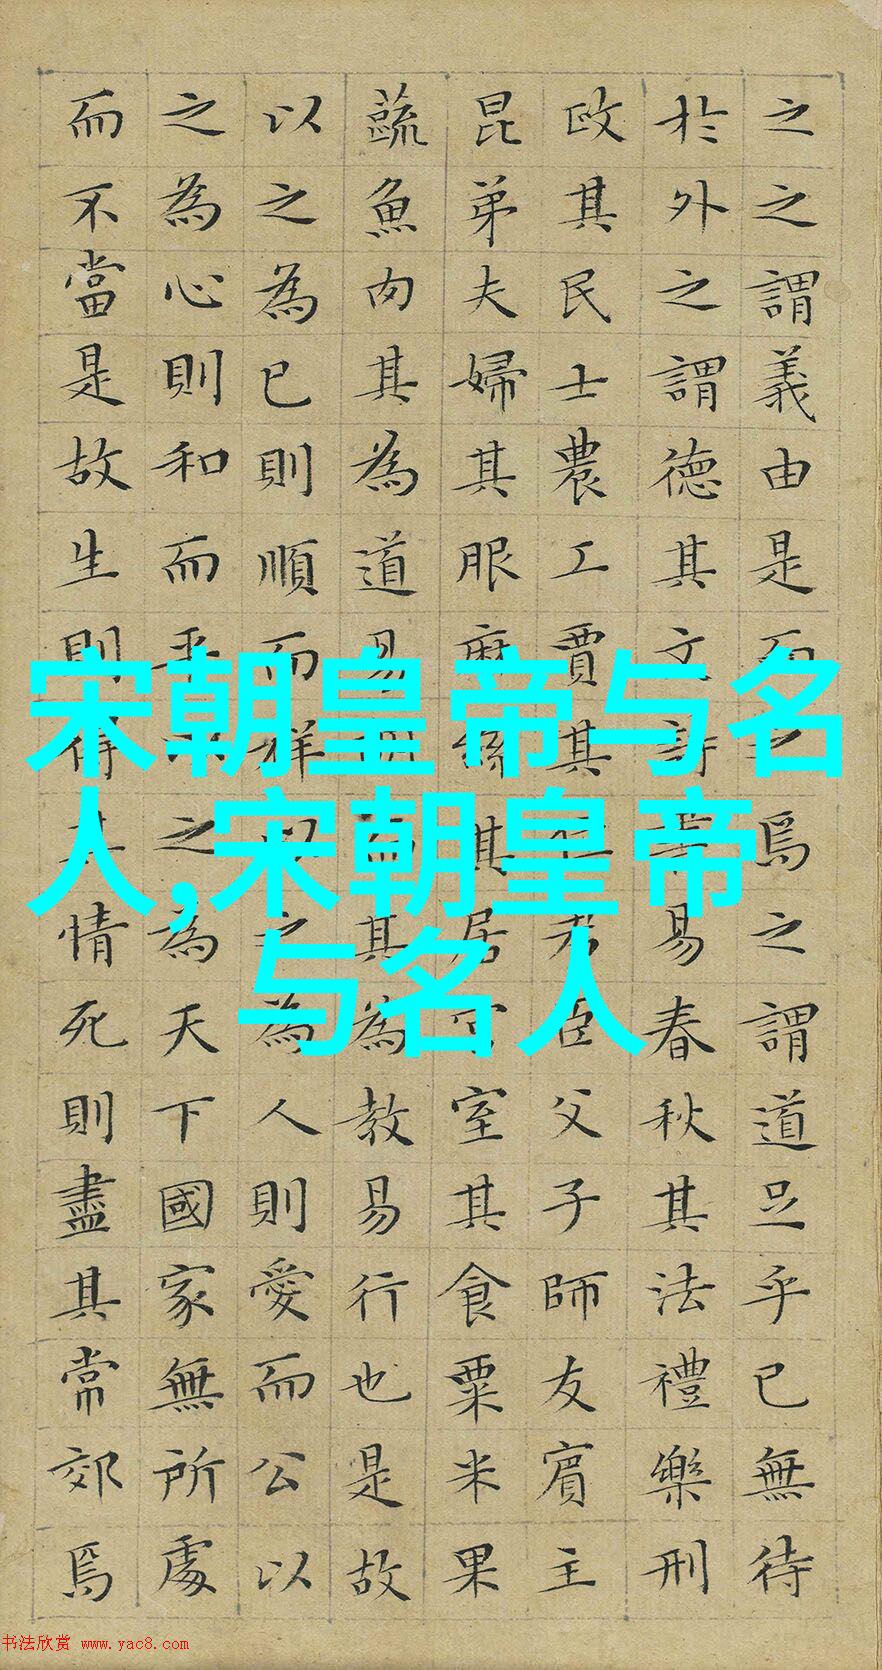 之之謂義由是而之焉之謂道足乎已無待
於外之謂德其文詩書易春秋其法禮樂刑
政其民士農工賈其位君臣父子師友賓主
昆弟夫婦其服麻絲其居宮室其食粟米果
蔬魚肉其為道易明而其為教易行也是故
以之為已則順而祥以之為人則愛而公以
之為心則和而平以之為天下國家無所處
而不當是故生則得其情死則盡其常郊焉
宋朝皇帝与名
人,宋朝皇帝
与名人
书法欣赏 www.yac8.com